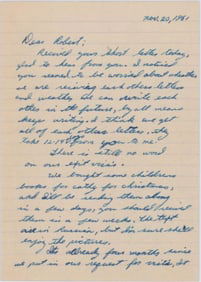 Nov. 20, 1961
Dear Robert:
Received your short letter today,
glad to hear from you. I noticed
you seemed to be worried about whether
we are receiving each others letters
and weather we can write each
other in the future, by all means
keep writing, I think we get
all of each others letters, they
take 12-14 from you to me.
There is still no word
on our exit visas.
We bought some childrens
books for cathy for christmas,
and I'll be sending them along
in a few days, you should receive
them in a few weeks. The text
are in Russian, but I'm sure she'll
enjoy the pictures.
Its already four months since
we put in our request for visas, It